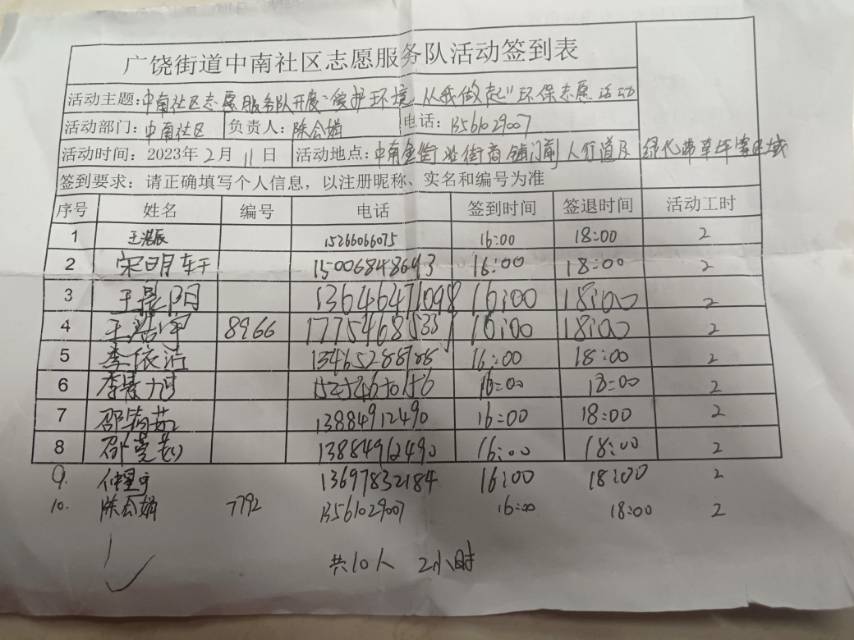 广饶街道中南社区志愿服务队活动签到表
活动主题：中南社区志愿服务队开展"爱护环境，从我做起"环保志愿活动
活动部门：中南社区 负责人：陈会娟 电话：13561029007
活动时间：2023年2月11日 活动地点：中南金街 街商铺门前人行道及绿化带 区域
签到要求：请正确填写个人信息，以注册昵称、实名和编号为准
序号 姓名 编号 电话 签到时间 签退时间 活动工时
1 王浩辰 15266066075 16:00 18:00 2
2 宋明轩 15006848643 16:00 18:00 2
3 王景阳 13646471098 16:00 18:00 2
4 8966 16:00 18:00 2
5 李依 16:00 18:00 2
6 李 16:00 18:00 2
7 邵 13884912490 16:00 18:00 2
8 邵 13884912490 16:00 18:00 2
9. 13697832184 16:00 18:00 2
10. 陈会娟 7792 13561029007 16:00 18:00 2
共10人 2小时